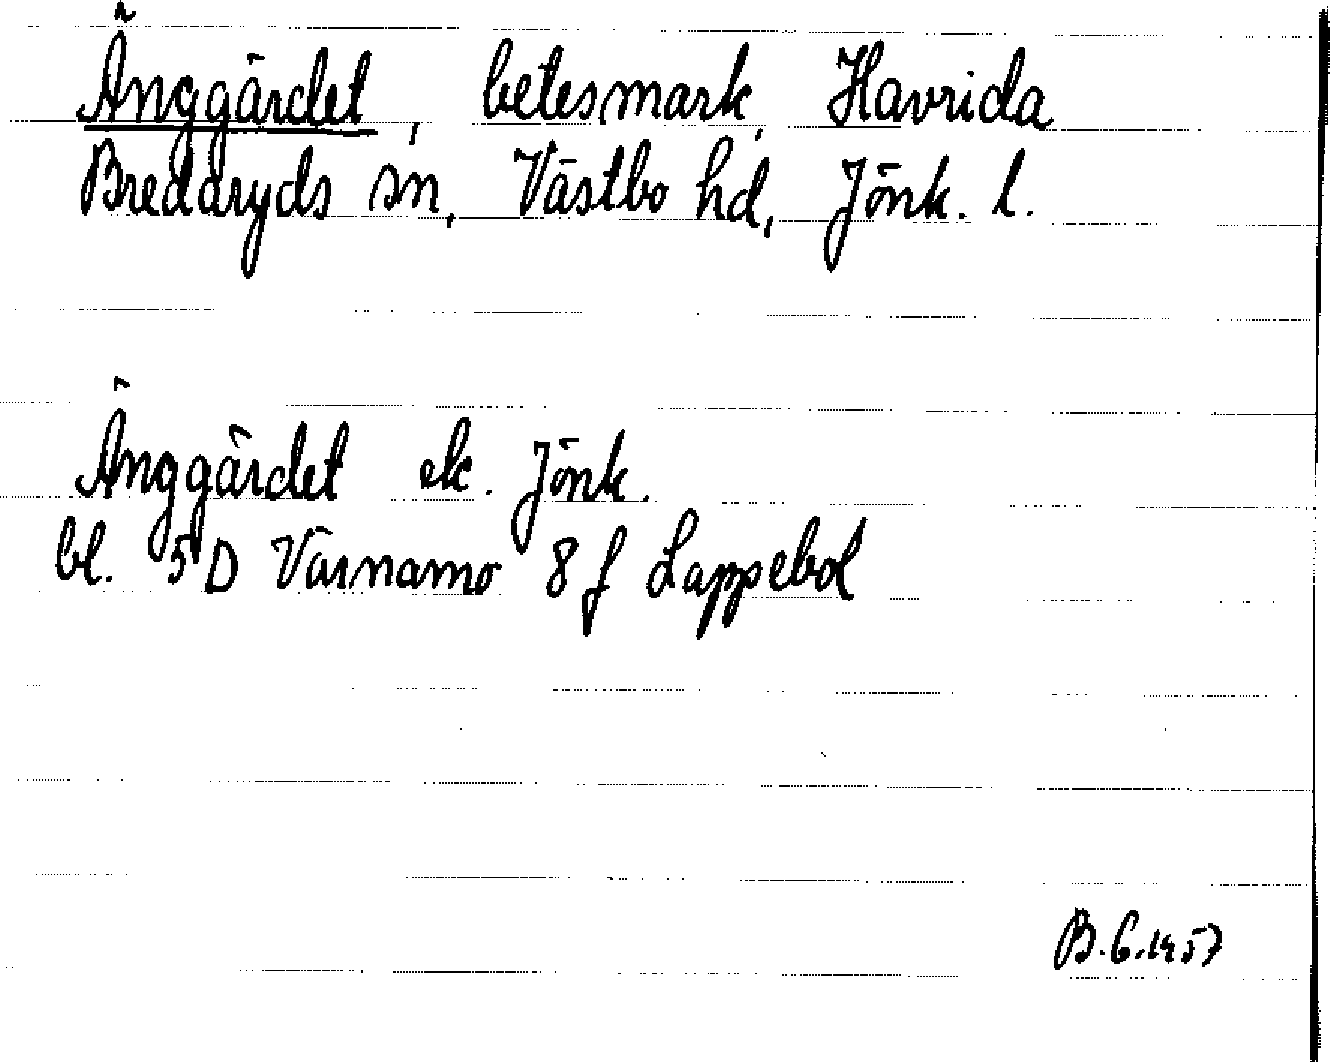 Änggärdet, betesmark, Havrida
Bredaryds sn, Västbo hd, Jönk. l.
Änggärdet ek. Jönk.
bl. 5D Värnamo 8f Lappebol
B.G.1957